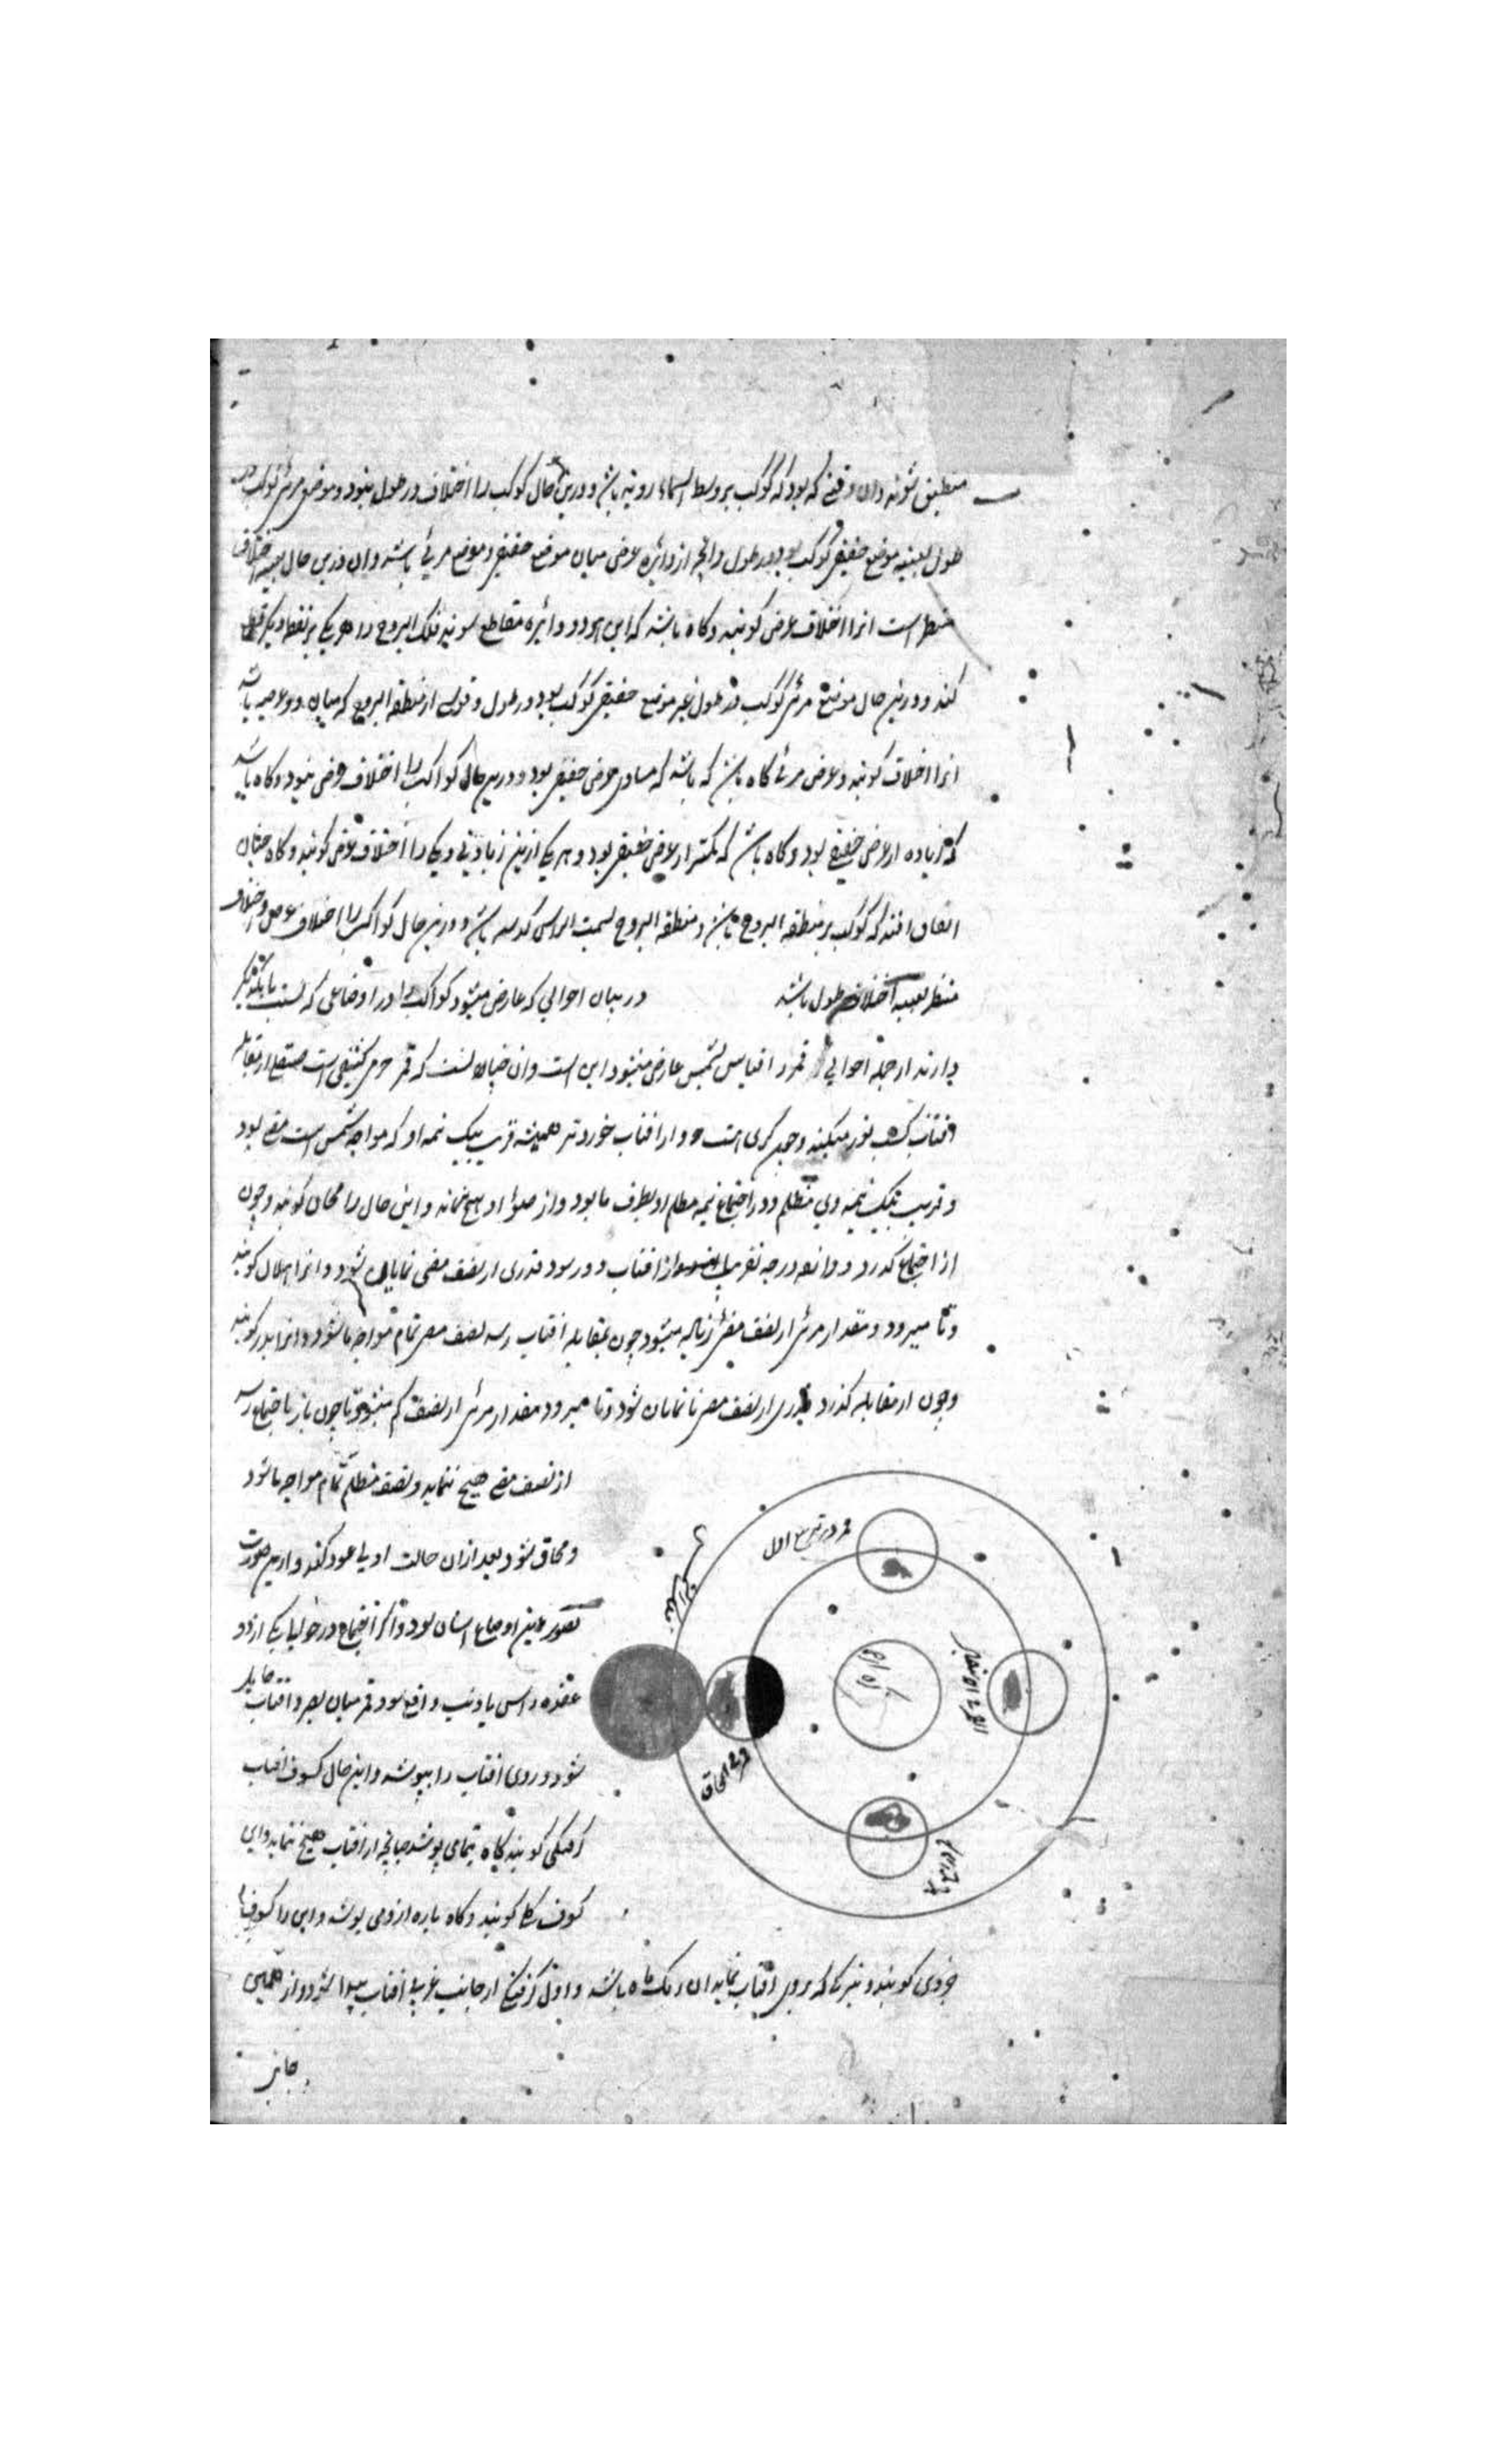 منطبق شوند وان وقتی که بود که کوکب بر وسط السماء رویة باشد و درین حال کوکب را اختلاف در طول نبود و موضع مرئی کوکب در
طول بعینه موضع حقیقی کوکب بود در طول وانچه از دائره عرض میان موضع حقیقی و موضع مرئی باشد وان درین حال بعینه اختلاف
منظر است انرا اختلاف عرض کویند و کاه باشد که این هر دو دائره مقاطع شوند فلک البروج را هر یکی بر نقطه دیگر قطع
کند و درین حال موضع مرئی کوکب در طول غیر موضع حقیقی کوکب بود در طول و قوسی از منطقه البروج که میان باشد
انرا اختلاف کویند و عرض مرئی کاه باشد که مساوی عرض حقیقی بود و درین حال کواکب را اختلاف عرض نبود و کاه باشد
که زیاده از عرض حقیقی بود و کاه باشد که کمتر از عرض حقیقی بود و هر یکی ازین زیادتی و کمی را اختلاف عرض کویند و کاه چنان
اتفاق افتد که کوکب بر منطقه البروج باشد و منطقه البروج بسمت الراس کذشته باشد و درین حال کواکب را اختلاف عرض و اختلاف
منظر بعینه اختلاف طول باشد در بیان احوالی که عارض میشود کواکب را در اوضاعی که نسبت بایکدیگر
دارند از جمله احوالی قمر را قیاس بشمس عارض میشود این است وان چنانست که قمر جرمی کثیف است صیقلی از مقابله
افتاب کسب نور میکند و چون کری است و از افتاب خوردتر همیشه قریب بیک نیمه او که مواجه شمس است مضی بود
و قریب بیک نیمه وی مظلم و در اجتماع نیمه مظلم او بطرف ما بود و از ضوء او هیچ ننماید و این حال را محاق کویند و چون
از اجتماع کذرد و دوازده درجه تقریبا از افتاب دور شود قدری از نصف مضی نمایان شود و انرا هلال کویند
و تا میرود مقدار مرئی از نصف مضی زیاده میشود چون بمقابله افتاب رسد نصف مضی تمام مواجه ما شود و انرا بدر کویند
و چون از مقابله کذرد قدری از نصف مضی نا نمایان شود و تا میرود مقدار مرئی از نصف کم میشود تا چون باز باجتماع رسد
از نصف مضی هیچ ننماید و نصف مظلم تمام مواجه ما شود
و محاق شود بعد ازان حالت اولی عود کند و از این صورت
تصور این اوضاع اسان بود و اکر اجتماع در حوالی یکی از دو
عقده راس یا ذنب واقع شود قمر میان بصر و افتاب حایل
شود و روی افتاب را بپوشد و این حال کسوف افتاب
کرفتکی کویند کاه بتمامی پوشد چنانچه از افتاب هیچ ننماید و این
کسوف کلی کویند و کاه پاره از وی پوشد و این را کسوف
جزوی کویند و تیرکی که بروی افتاب نماید ان رنک ماه باشد و اول کرفتن از جانب غربی افتاب پیدا شود و از همین
جانب
قمر در تربیع اول